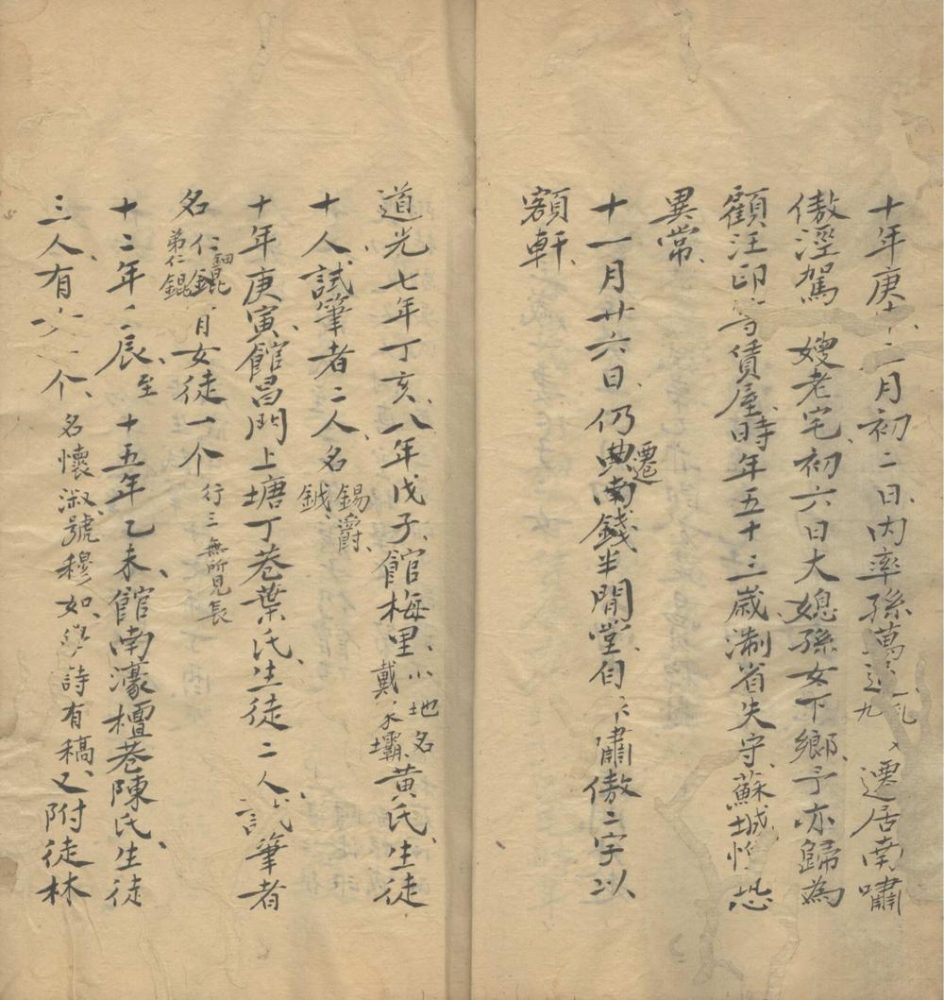 十年庚二月初二日內率孫萬九遷居南嘯
傲涇駕嫂老宅初六日大媳孫女下鄉予亦歸為
顧汪印等賃屋時年五十三歲浙省失守蘇城恐
異常
十一月廿六日仍遷典南錢半閒堂自嘯傲二字以
額軒
道光七年丁亥八年戊子館梅里小地名戴壩黃氏生徒
十人試筆者二人名錫爵鉞
十年庚寅館昌門上塘丁巷葉氏生徒二人試筆者
名仁錕弟仁錕女徒一个行三無所見長
十二年辰至十五年乙未館南濠檀巷陳氏生徒
三人有个名懷淑號穆如學詩有稿又附徒林